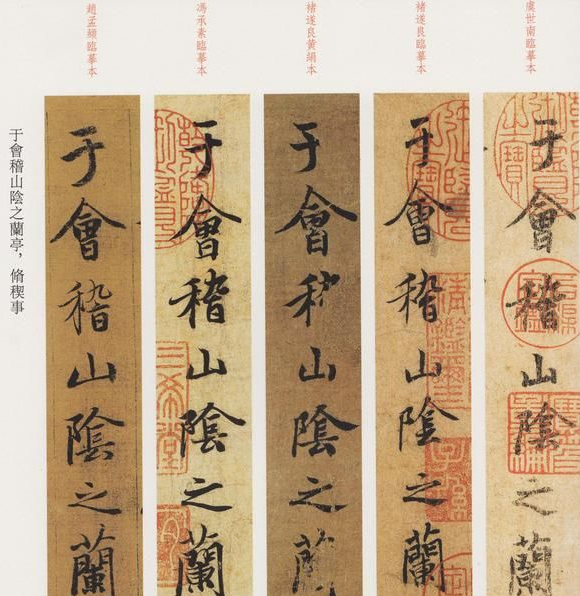 虞世南臨摹本
于會稽山陰之蘭
褚遂良臨摹本
于會稽山陰之蘭
褚遂良黃絹本
于會稽山陰之蘭
馮承素臨摹本
于會稽山陰之蘭
趙孟頫臨摹本
于會稽山陰之蘭
于會稽山陰之蘭亭，脩稧事